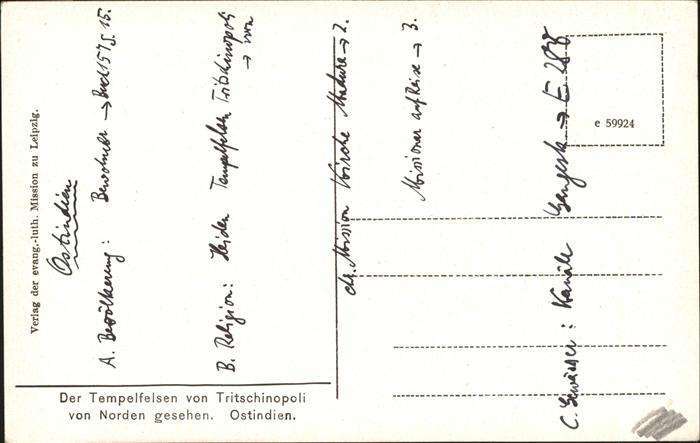 Verlag der evang.-luth. Mission zu Leipzig.
Ostindien
A. Bevölkerung: Bewohner → Buch 157 S. 15.
B. Religion: Heiden Tempelfelsen Tritschinopoli
→ von
chr. Mission Kirche Madura → 2.
Missionar auf Reise → 3.
C. Gewässer: Kanäle → E. 28
e 59924
Der Tempelfelsen von Tritschinopoli
von Norden gesehen. Ostindien.